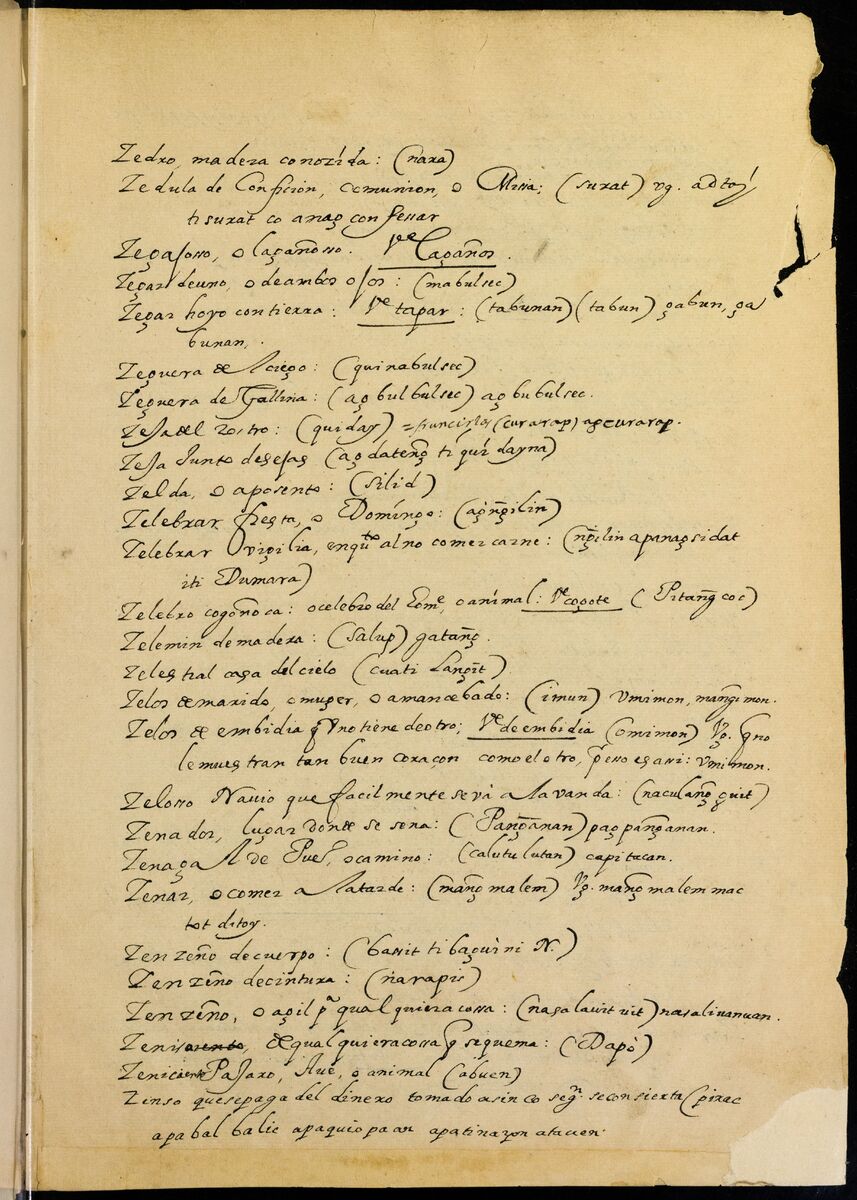 Zedro, madera conozída: (nara)
Zedula de Confiçion, comunion, o Missa; (surat) vg. adtoý
ti surat co anag confessar
Zegajosso, o lagañosso. Vᵉ Lagaños.
Zegar deuno, o deambos ojos: (mabulsec)
Zegar hoyo con tierra: Vᵉ tapar: (tabunan) (tabun) gabun, ga
bunan,.
Zeguera de l ciego: (quinabulsec)
Zeguera de Gallina: (ag bulbulsec) ag bubulsec.
Zeja del rostro: (quiday) = fruncirlas (curarap) ag curarap.
Zeja Junto de sejas (ag dateng ti quidayna)
Zelda, o aposento: (silid)
Zelebrar fiesta, o Domíngo: (agngilin)
Zelebrar vigilia, enqᵗᵒ al no comer carne: (ngilin apanagsidat
iti Dumara)
Zelebro cogonoca: o celebro del Homᵉ, o anímal: Vᵉ cogote (Pitang coc)
Zelemin de madera: (Salup) gatang.
Zelestial casa del cielo (cuati Langit)
Zelos de marido, o muger, o amancebado: (imun) vmimon, mangimon.
Zelos de embidia q̃ Vno tiene de otro; Vᵉ de embidia (omimon) Vg. q̃ no
le muestran tan buen coraçon como el otro, p̃ eso es asi: vmimon.
Zeloso Navio que facilmente se và a la vanda: (naculang quit)
Zenador, lugar donde se sena: (Panganan) pag panganan.
Zenaga l de Pueᵒ, o camino: (calutulutan) capitacan.
Zenar, o comer a la tarde: (mang malem) Vg. mang malem mac
tot ditoy.
Zenzeño de cuerpo: (bassit ti baguini N.)
Zenzeño de cintura: (narapis)
Zenzeño, o agil pᵃ qual quiera cossa: (nasalauit uit) nasaliuanuan.
Zenisaiento, de qual quiera cossa q̃ se quema: (Dapò)
Zeniciento Pajaro, Aue, o animal (abuen)
Zinso que se paga del dinero tomado asin co segᵒ. se consierta (pirac
apabalbalic apaquiopaan apatinazon atauen.